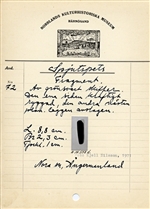 NORRLANDS KULTURHISTORISKA MUSEUM
HÄRNÖSAND
Spjutspets
Fragment.
72
Av grönsvart skiffer.
Den ena sidan
ryggad, den andra nästan
plan. Eggen avslagen.
L. 8,8 cm.
Br. 2,3 cm.
Tjockl. 1 cm.
Nora sn, Ångermanland